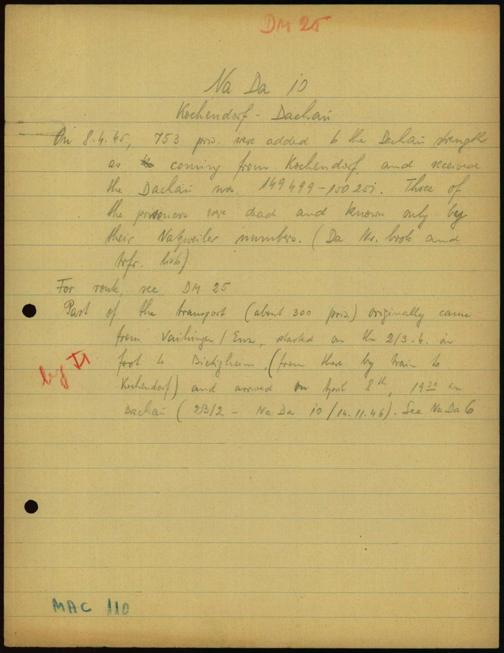 DM 25
Na Da 10
Kochendorf - Dachau
On 8.4.45, 753 pris. were added to the Dachau strength
as coming from Kochendorf and received
the Dachau nos 149499-150251. Three of
the prisoners were dead and known only by
their Natzweiler numbers. (Da Nr. book and
trfr. lists)
For route, see DM 25
Part of the transport (about 300 pris.) originally came
from Vaihingen/Enz, started on the 2/3.4. on
foot to Bietigheim, (from there by train to
by VI
Kochendorf) and arrived on April 8th, 1930 in
Dachau (2/3/2 - Na Da 10/14.11.46). See Na Da 6
MAC 110